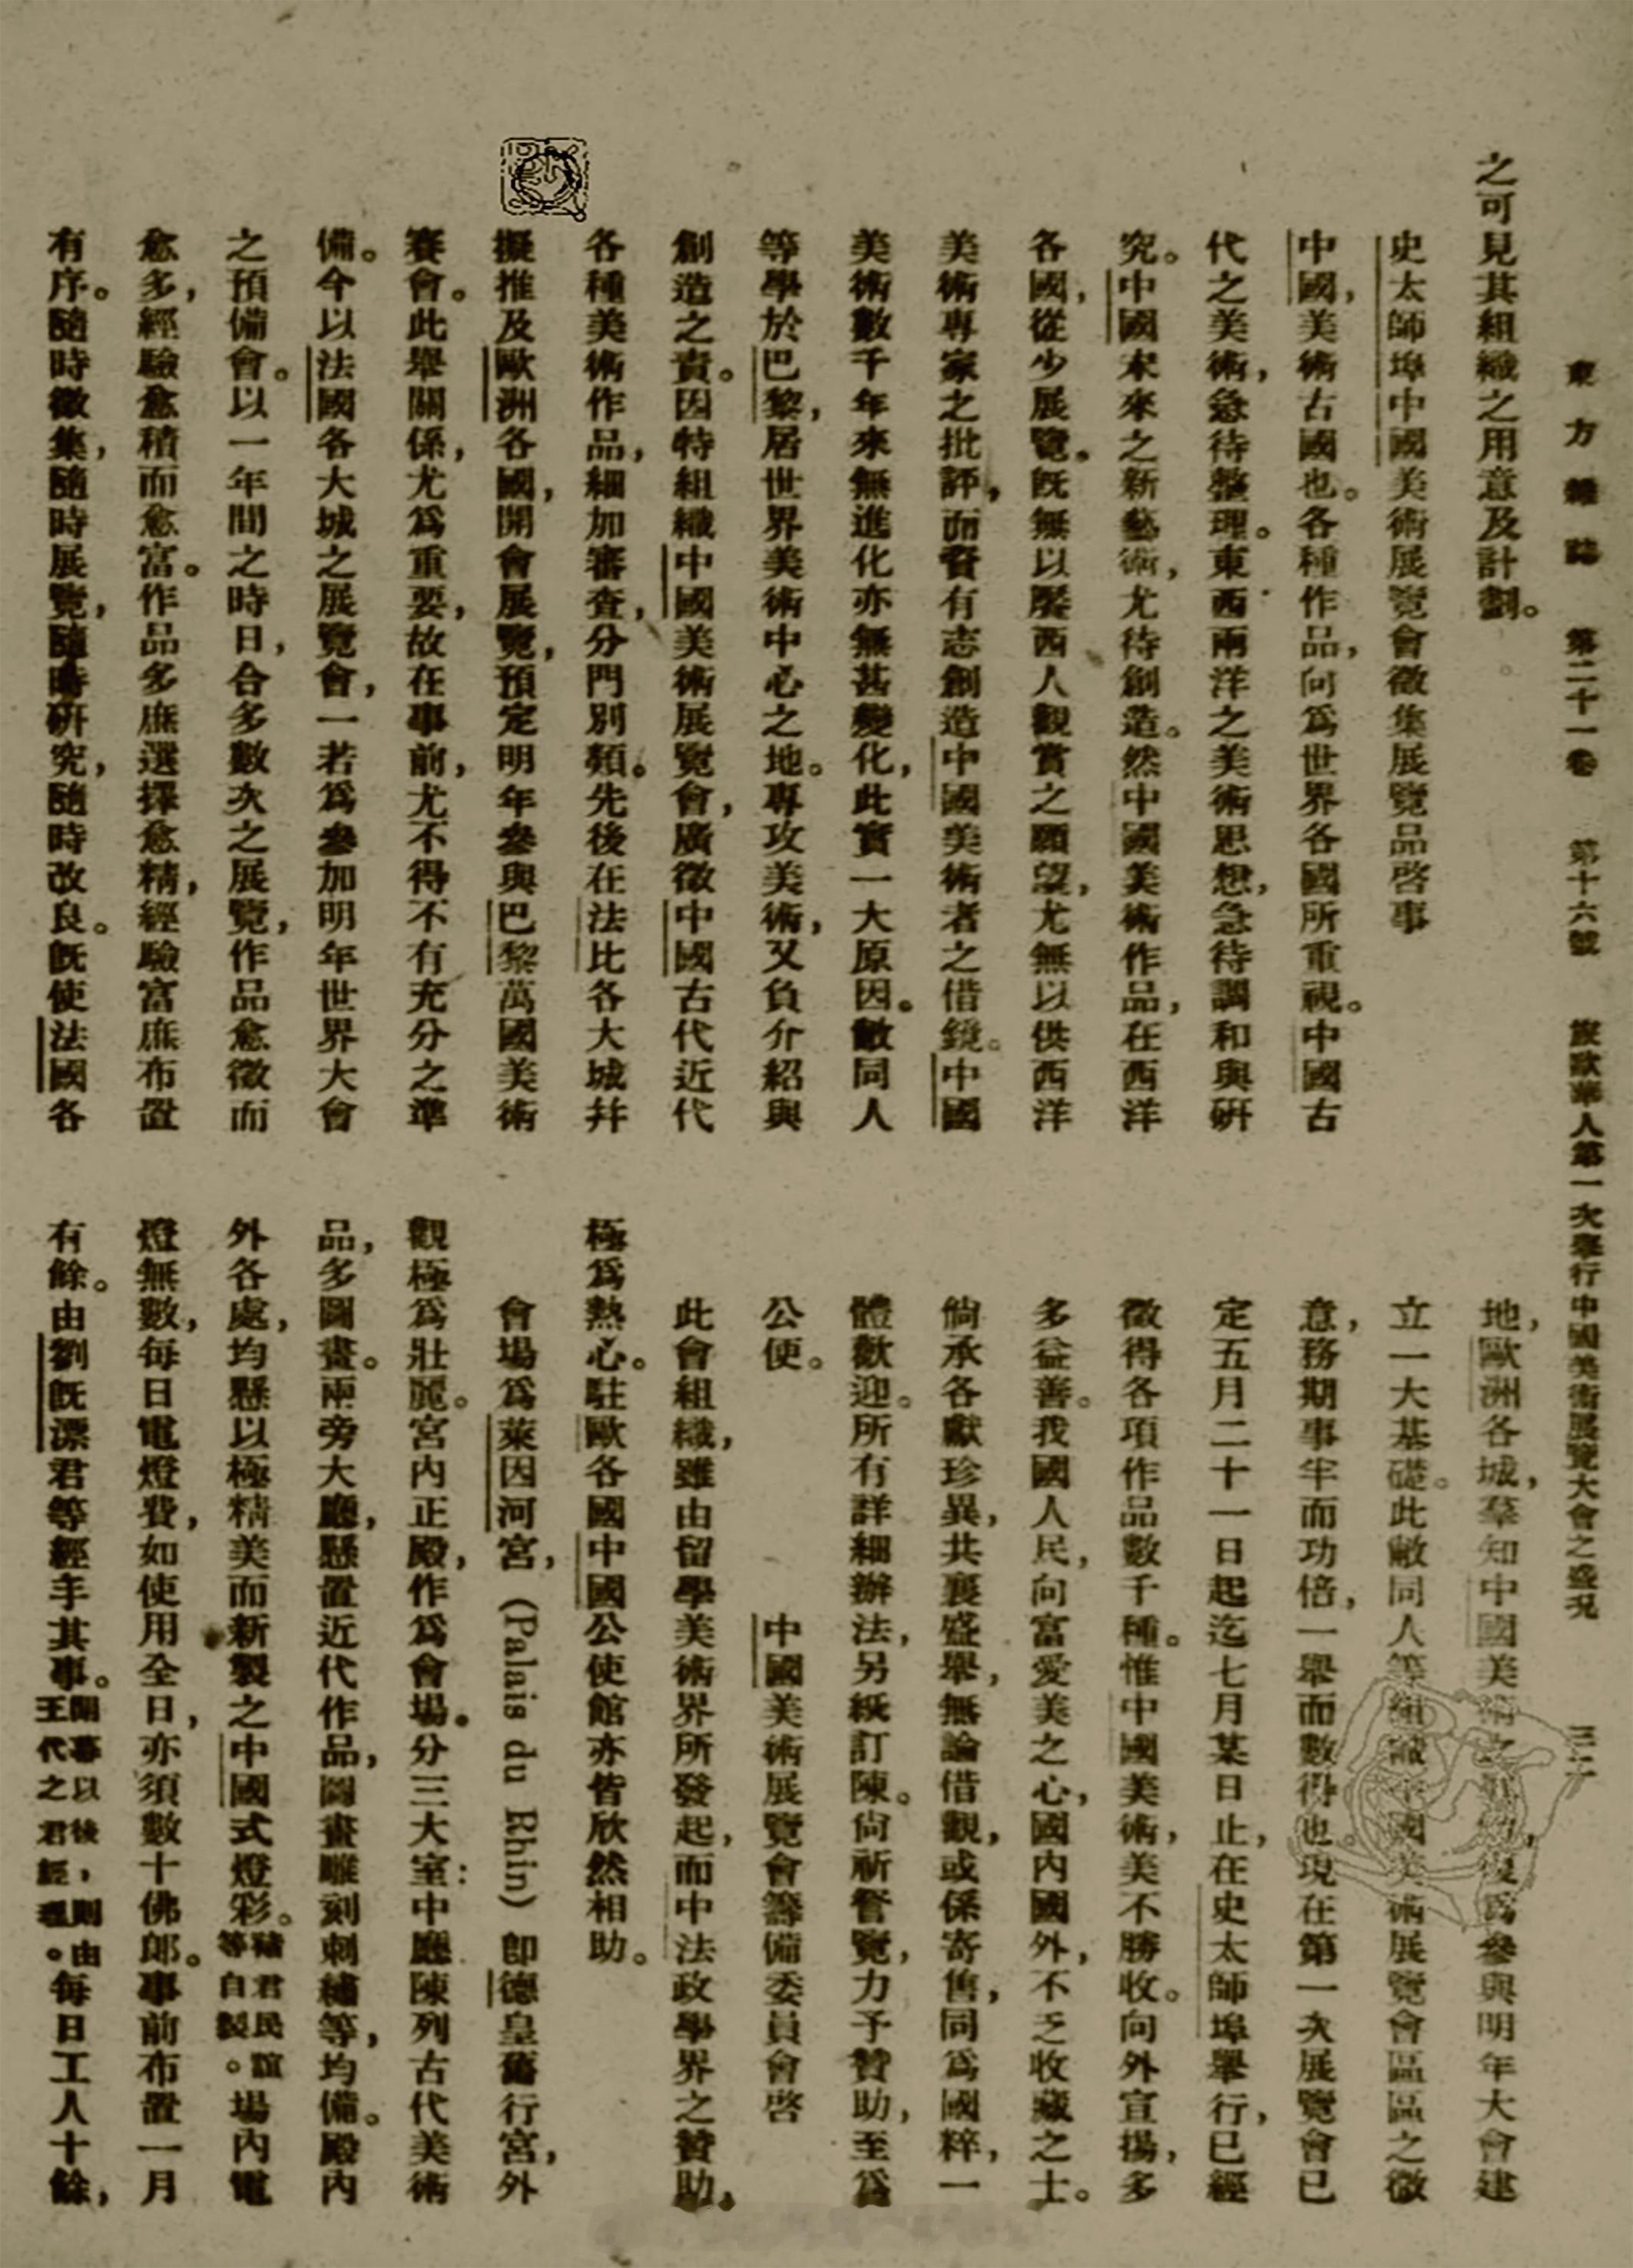 東方雜誌 第二十一卷 第十六號 旅歐華人第一次舉行中國美術展覽大會之盛況 三二
之可見其組織之用意及計劃。
史太師埠中國美術展覽會徵集展覽品啓事
中國，美術古國也。各種作品，向爲世界各國所重視。中國古
代之美術，急待整理。東西兩洋之美術思想，急待調和與研
究。中國未來之新藝術，尤待創造。然中國美術作品，在西洋
各國，從少展覽。旣無以饜西人觀賞之願望，尤無以供西洋
美術專家之批評，而資有志創造中國美術者之借鏡。中國
美術數千年來無進化亦無甚變化，此實一大原因。敝同人
等學於巴黎，居世界美術中心之地。專攻美術，又負介紹與
創造之責。因特組織中國美術展覽會，廣徵中國古代近代
各種美術作品，細加審查，分門別類。先後在法比各大城幷
擬推及歐洲各國，開會展覽，預定明年參與巴黎萬國美術
賽會。此舉關係，尤爲重要，故在事前，尤不得不有充分之準
備。今以法國各大城之展覽會，一若爲參加明年世界大會
之預備會。以一年間之時日，合多數次之展覽，作品愈徵而
愈多，經驗愈積而愈富。作品多庶選擇愈精，經驗富庶布置
有序。隨時徵集，隨時展覽，隨時研究，隨時改良。旣使法國各
地，歐洲各城，羣知中國美術之，復爲參與明年大會建
立一大基礎。此敝同人等組織中國美術展覽會區區之微
意，務期事半而功倍，一舉而數得也。現在第一次展覽會已
定五月二十一日起迄七月某日止，在史太師埠舉行，已經
徵得各項作品數千種。惟中國美術，美不勝收。向外宣揚，多
多益善。我國人民，向富愛美之心，國內國外，不乏收藏之士。
倘承各獻珍異，共襄盛舉，無論借觀，或係寄售，同爲國粹，一
體歡迎。所有詳細辦法，另紙訂陳。尙祈詧覽，力予贊助，至爲
公便。 中國美術展覽會籌備委員會啓
此會組織，雖由留學美術界所發起，而中法政學界之贊助，
極爲熱心。駐歐各國中國公使館亦皆欣然相助。
會場爲萊因河宮，（Palais du Rhin）卽德皇舊行宮，外
觀極爲壯麗。宮內正殿，作爲會場。分三大室：中廳陳列古代美術
品，多圖畫。兩旁大廳，懸置近代作品，圖畫雕刻刺繡等，均備。殿內
外各處，均懸以極精美而新製之中國式燈彩。諸君民誼等自製。場內電
燈無數，每日電燈費，如使用全日，亦須數十佛郎。事前布置一月
有餘。由劉旣漂君等經手其事。開幕以後，則由王代之君經理。每日工人十餘，